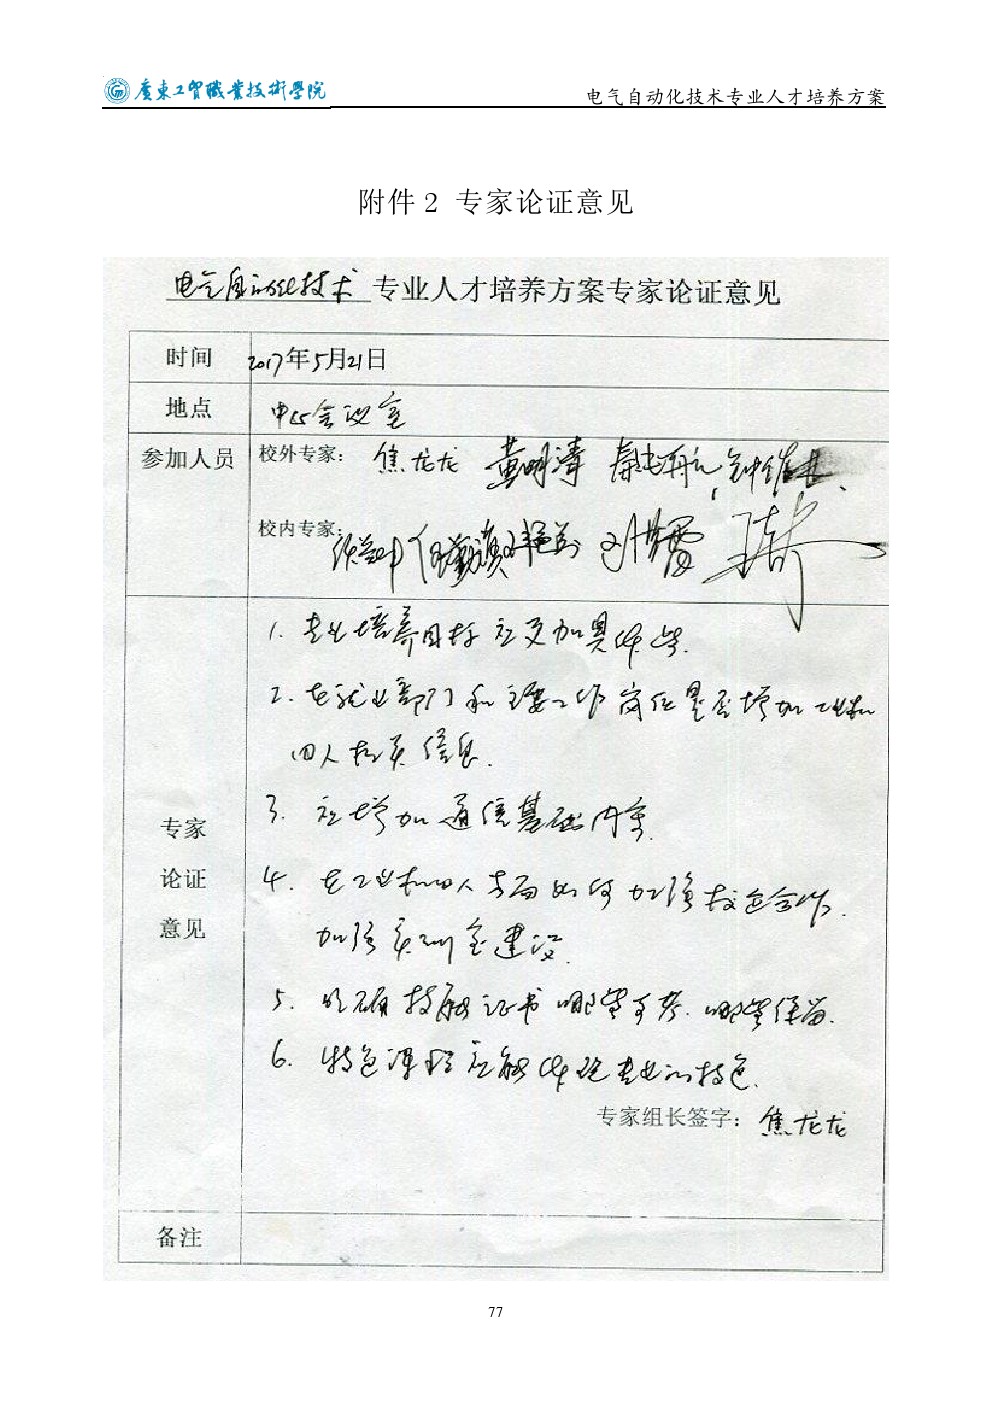 廣東工贸職業技術學院
电气自动化技术专业人才培养方案
附件2 专家论证意见
电气自动化技术 专业人才培养方案专家论证意见
时间 2017年5月21日
地点 中心会议室
参加人员 校外专家： 焦龙龙 黄明清
校内专家：
专家论证意见
1. 专业培养目标应更加具体些.
2. 在就业部门和主要工作岗位是否增加工业机
四人相关信息.
3. 应增加通信基础内容.
4. 在工业机四人方面如何加强校企合作.
加强实训室建设.
5. 明确技能证书哪些可考.哪些保留.
6. 特色课程应能体现专业的特色.
专家组长签字： 焦龙龙
备注
77